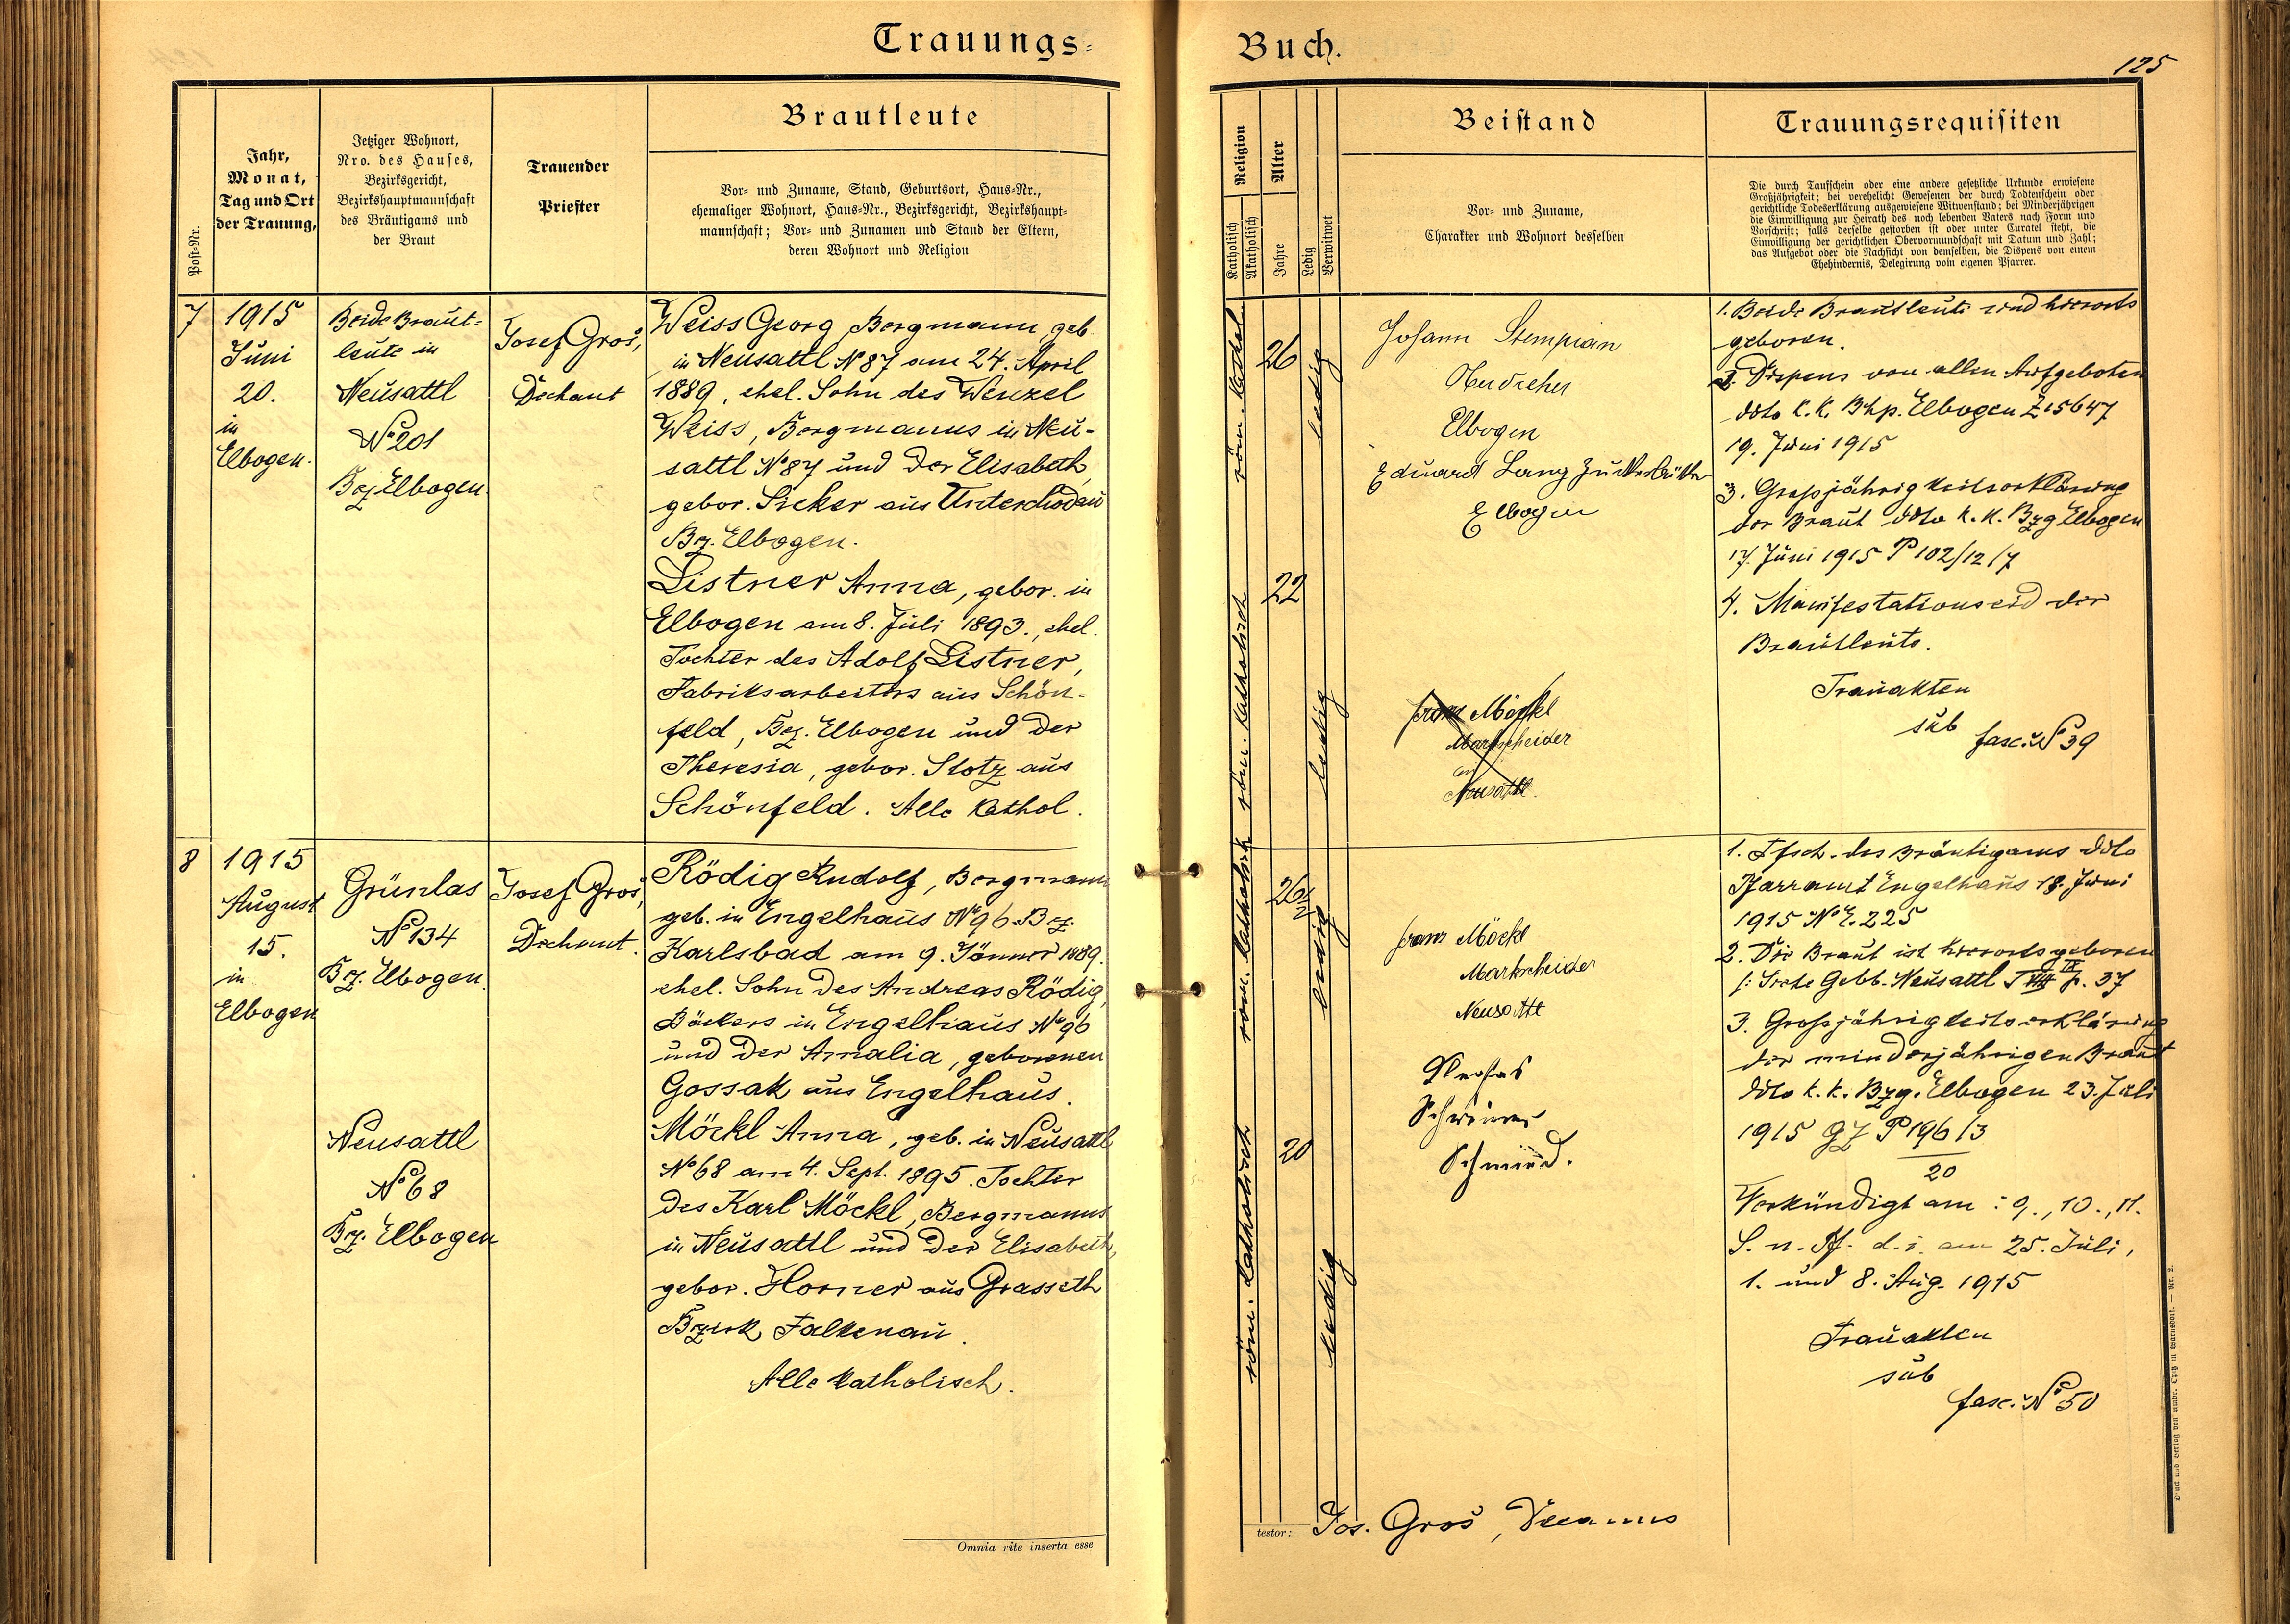 Trauungs-
Post-Nr.
Jahr,
Monat,
Tag und Ort
der Trauung,
Jetziger Wohnort,
Nro. des Hauses,
Bezirksgericht,
Bezirkshauptmannschaft
des Bräutigams und
der Braut
Trauender
Priester
Brautleute
Vor- und Zuname, Stand, Geburtsort, Haus-Nr.,
ehemaliger Wohnort, Haus-Nr., Bezirksgericht, Bezirkshaupt-
mannschaft; Vor- und Zunamen und Stand der Eltern,
deren Wohnort und Religion
7
1915
Juni
20.
in
Elbogen.
Beide Braut-
leute in
Neusattl
No 201
Bez Elbogen.
Josef Gros,
Dechant
Weiss Georg Bergmann, geb.
in Neusattl No 87 am 24. April
1889, ehel. Sohn des Wenzel
Weiss, Bergmanns in Neu-
sattl No 87 und der Elisabeth,
gebor. Sicker aus Unterchodau
Bz. Elbogen.
Listner Anna, gebor. in
Elbogen am 8. Juli 1893., ehel.
Tochter des Adolf Listner,
Fabriksarbeiters aus Schön-
feld, Bez. Elbogen und der
Theresia, gebor. Stotz aus
Schönfeld. Alle kathol.
8
1915
August
15.
in
Elbogen
Grünlas
No 134
Bz. Elbogen.
Neusattl
No 68
Bz. Elbogen
Josef Gros,
Dechant.
Rödig Rudolf, Bergmann
geb. in Engelhaus No 96 Bz.
Karlsbad am 9. Jänner 1889.
ehel. Sohn des Andreas Rödig,
Bäckers in Engelhaus No 96
und der Amalia, geborenen
Gossak aus Engelhaus.
Möckl Anna, geb. in Neusattl
No 68 am 4. Sept. 1895. Tochter
des Karl Möckl, Bergmanns
in Neusattl und der Elisabeth,
gebor. Horner aus Grasseth
Bezirk Falkenau.
Alle katholisch.
Omnia rite inserta esse
Buch.
125
Religion
Katholisch
Akatholisch
Alter
Jahre
Ledig
Verwitwet
Beistand
Vor- und Zuname,
Charakter und Wohnort desselben
Trauungsrequisiten
Die durch Taufschein oder eine andere gesetzliche Urkunde erwiesene
Großjährigkeit; bei verehelicht Gewesenen der durch Todtenschein oder
gerichtliche Todeserklärung ausgewiesene Witwenstand; bei Minderjährigen
die Einwilligung zur Heirath des noch lebenden Vaters nach Form und
Vorschrift; falls derselbe gestorben ist oder unter Curatel steht, die
Einwilligung der gerichtlichen Obervormundschaft mit Datum und Zahl;
das Aufgebot oder die Nachsicht von demselben, die Dispens von einem
Ehehindernis, Delegirung vom eigenen Pfarrer.
röm. kathol.
26
ledig
röm. katholisch
22
ledig
Johann Stempian
Oberdreher
Elbogen
Eduard Lang
Elbogen
Franz Möckl
Markscheider
in
Neusattl.
1. Beide Brautleute sind hierorts
geboren.
2. Dispens von allen Aufgeboten
ddto k.k. Bhp. Elbogen Z 15647
19. Juni 1915
3. Grossjährigkeitserklärung
der Braut ddto k.k. Bzg Elbogen
17. Juni 1915 P 102/12/7
4. Manifestationseid der
Brautleute.
Trauakten
sub
fasc. No 39
röm. katholisch
26 1/2
ledig
röm. katholisch
20
ledig
Franz Möckl
Markscheider
Neusattl
Schmied.
1. Tfsch. des Bräutigams ddto
Pfarramt Engelhaus 18. Juni
1915 No E. 225
2. Die Braut ist hierorts geboren
Gebb. Neusattl T VIII IX p. 37
3. Grossjährigkeitserklärung
der minderjährigen Braut
ddto k.k. Bzg. Elbogen 23. Juli
1915 GZ P 196/3
20
Verkündigt am: 9., 10., 11.
S. n. Pf. d. i. am 25. Juli,
1. und 8. Aug. 1915
Trauakten
sub
fasc. No 50
testor: Jos. Gros, Decanus